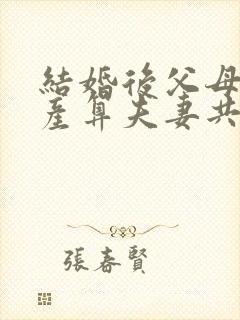 結婚後父母
產算夫妻共
張春賢